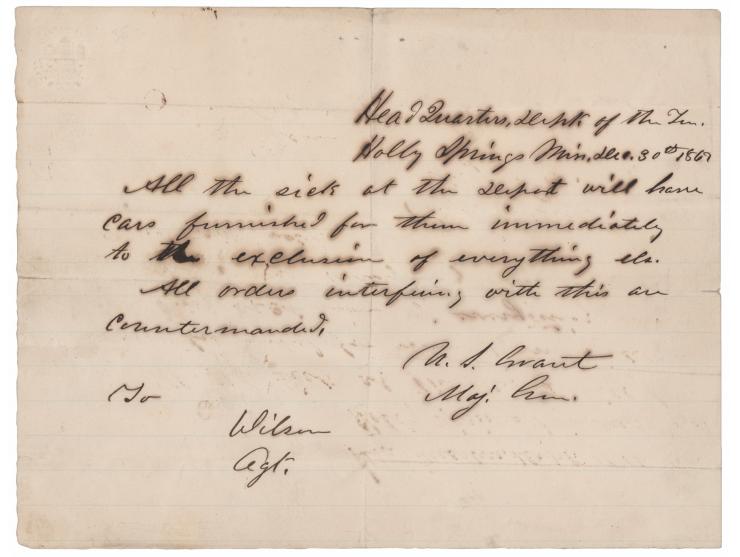 Head Quarters, Dept. of the Ten.
Holly Springs Miss, Dec. 30th 1862
All the sick at the Depot will have
cars furnished for them immediately
to the exclusion of everything els.
All orders interfering with this are
countermanded,
U. S. Grant
Maj. Gen.
To
Wilson
Agt.